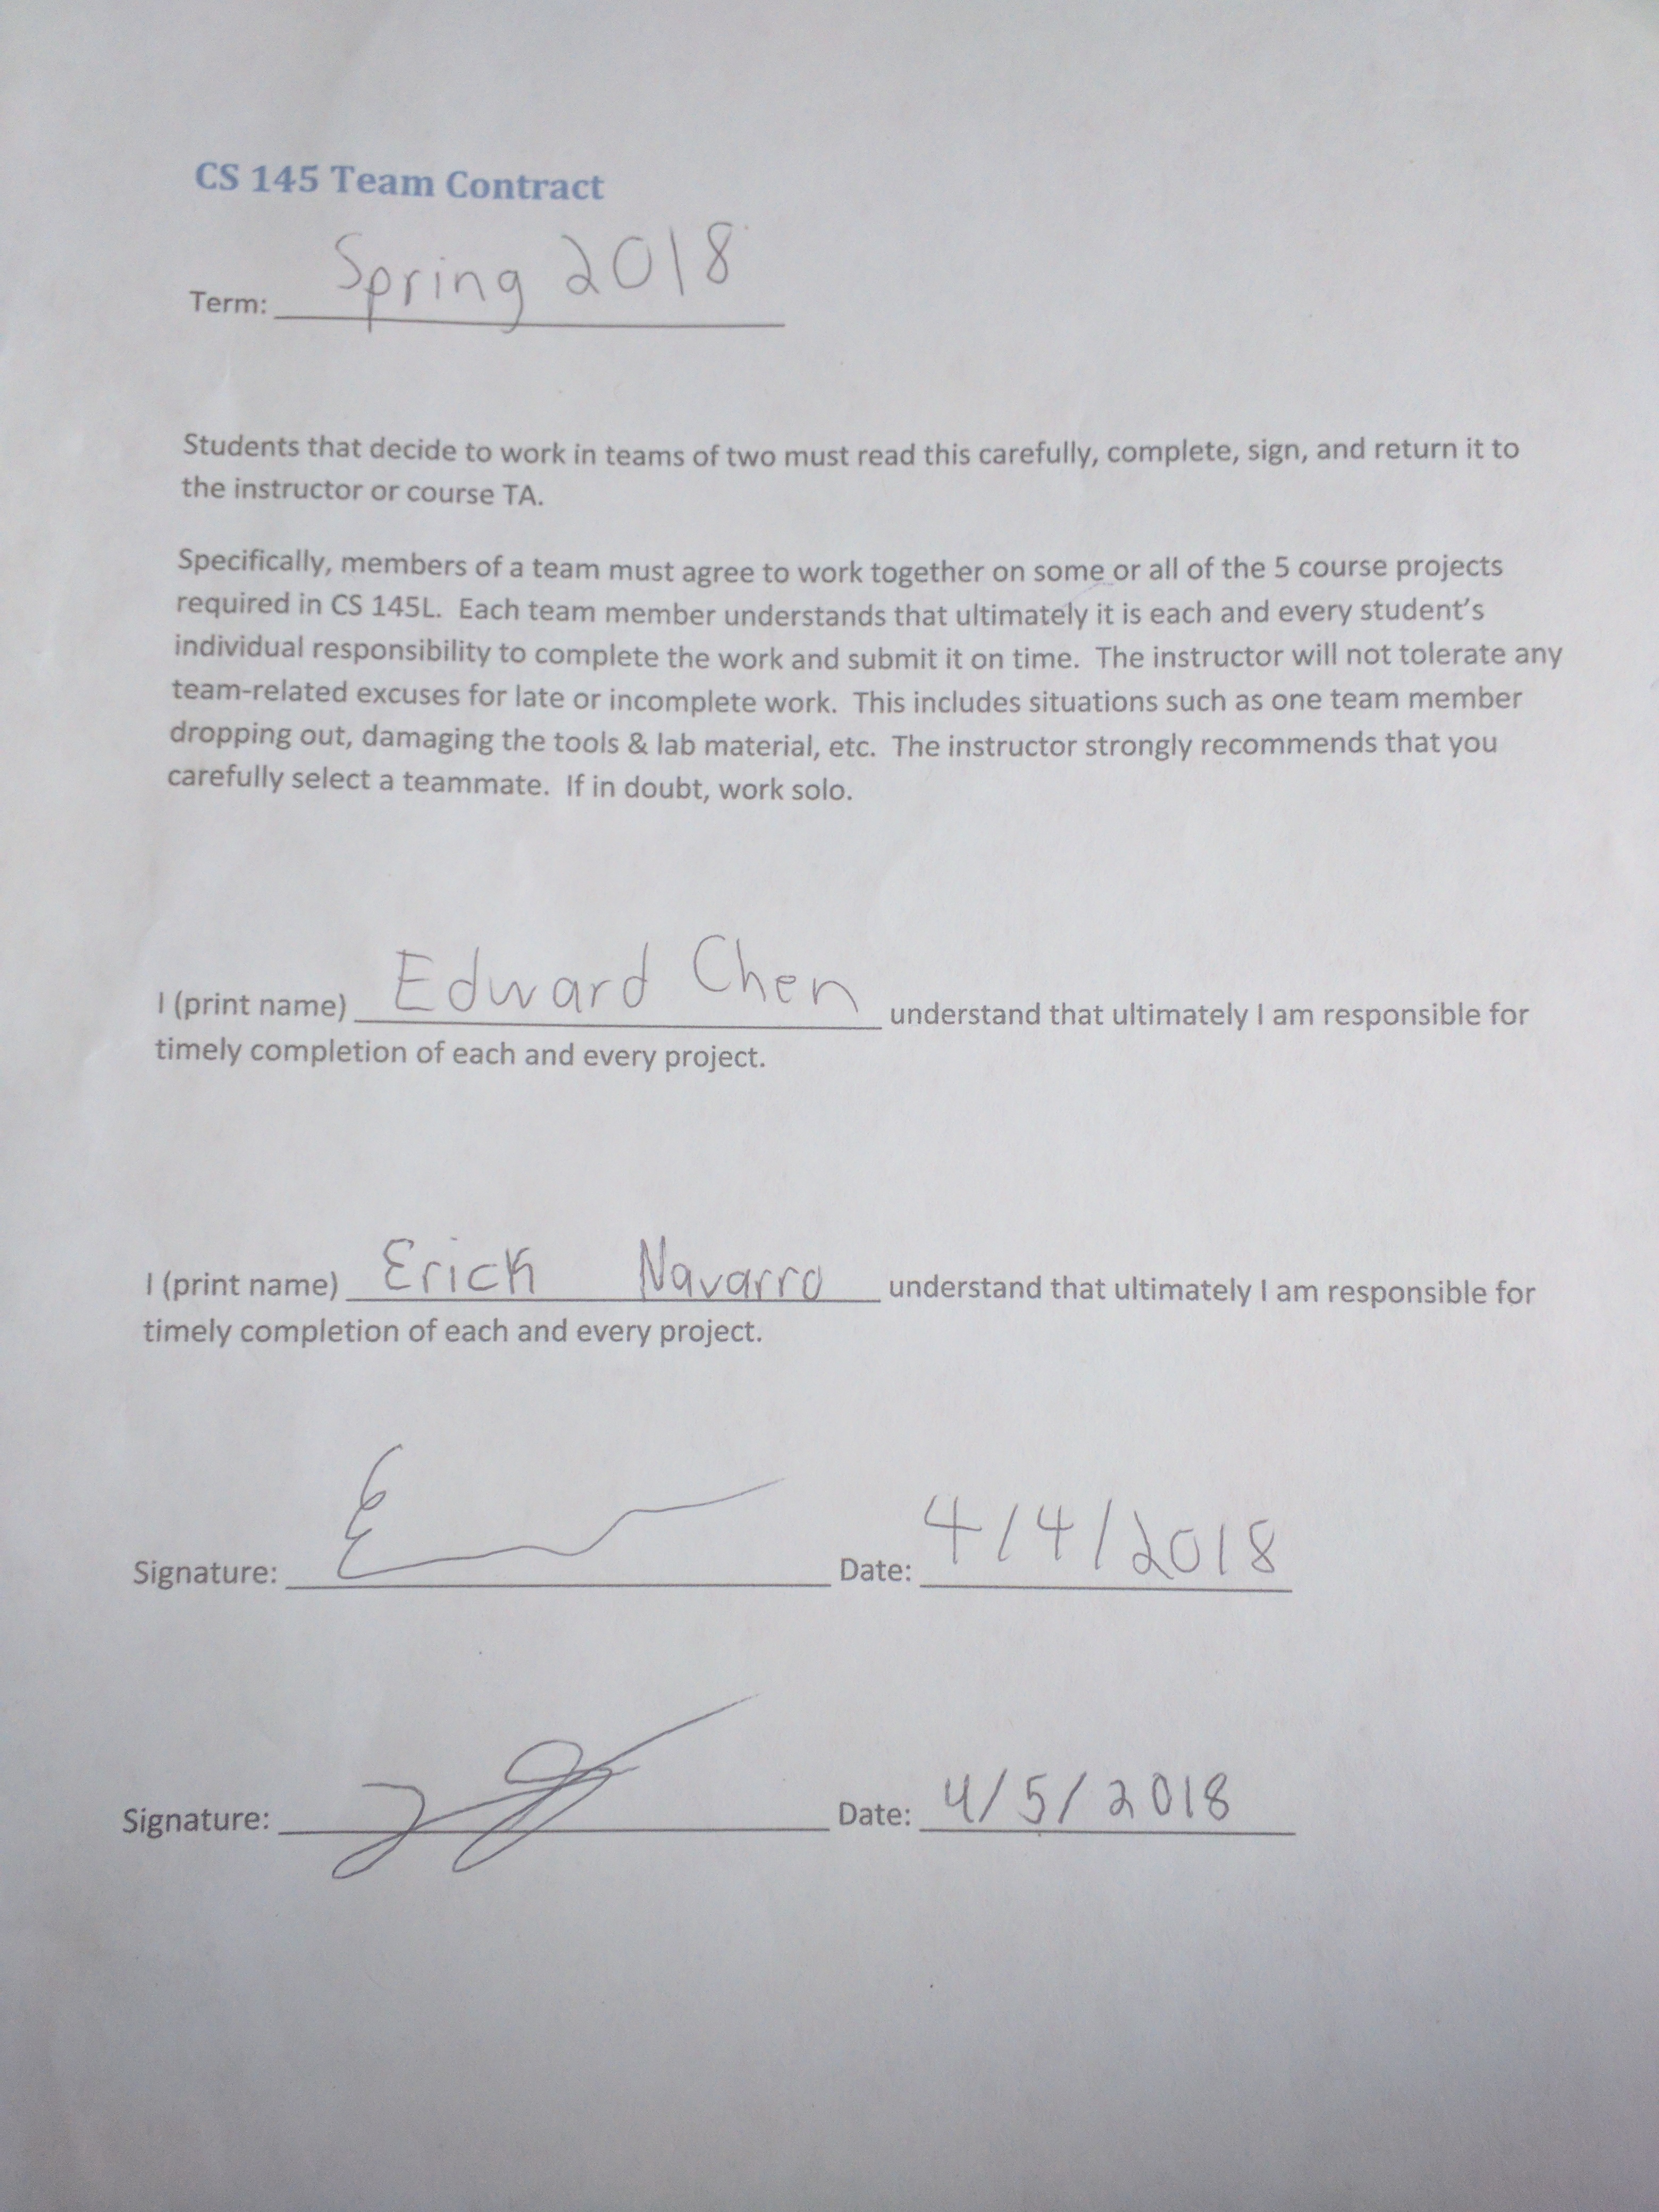 CS 145 Team Contract
Term: Spring 2018
Students that decide to work in teams of two must read this carefully, complete, sign, and return it to
the instructor or course TA.
Specifically, members of a team must agree to work together on some or all of the 5 course projects
required in CS 145L. Each team member understands that ultimately it is each and every student's
individual responsibility to complete the work and submit it on time. The instructor will not tolerate any
team-related excuses for late or incomplete work. This includes situations such as one team member
dropping out, damaging the tools & lab material, etc. The instructor strongly recommends that you
carefully select a teammate. If in doubt, work solo.
I (print name) Edward Chen understand that ultimately I am responsible for
timely completion of each and every project.
I (print name) Erick Navarro understand that ultimately I am responsible for
timely completion of each and every project.
Signature: Date: 4/4/2018
Signature: Date: 4/5/2018